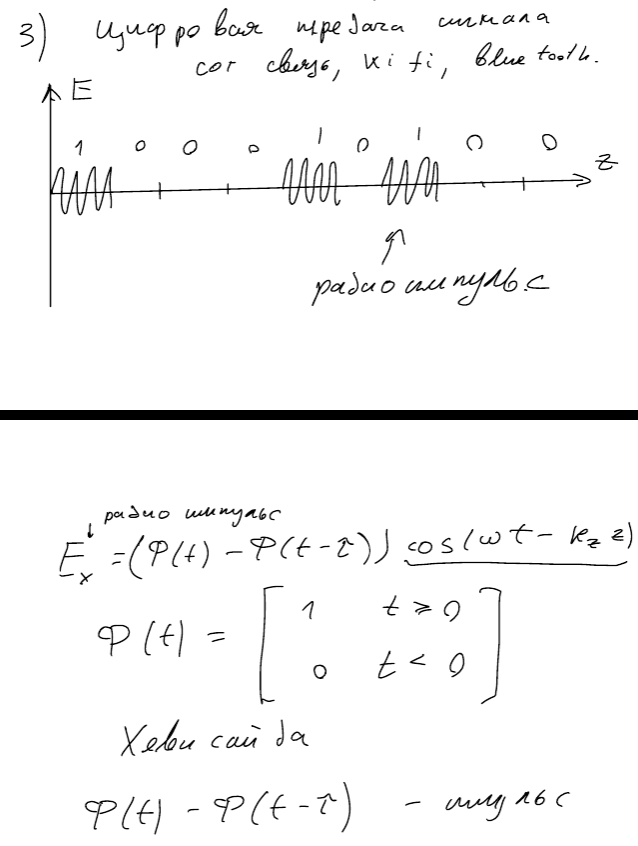 3) Цифровая передача сигнала
сот связь, wi fi, bluetooth.
E
1 0 0 0 1 0 1 0 0
z
радиоимпульс
радиоимпульс
E_x = (Φ(t) - Φ(t-τ)) cos(ωt - k_z z)
Φ(t) = [ 1 t ≥ 0
0 t < 0 ]
Хевисайда
Φ(t) - Φ(t-τ) - импульс